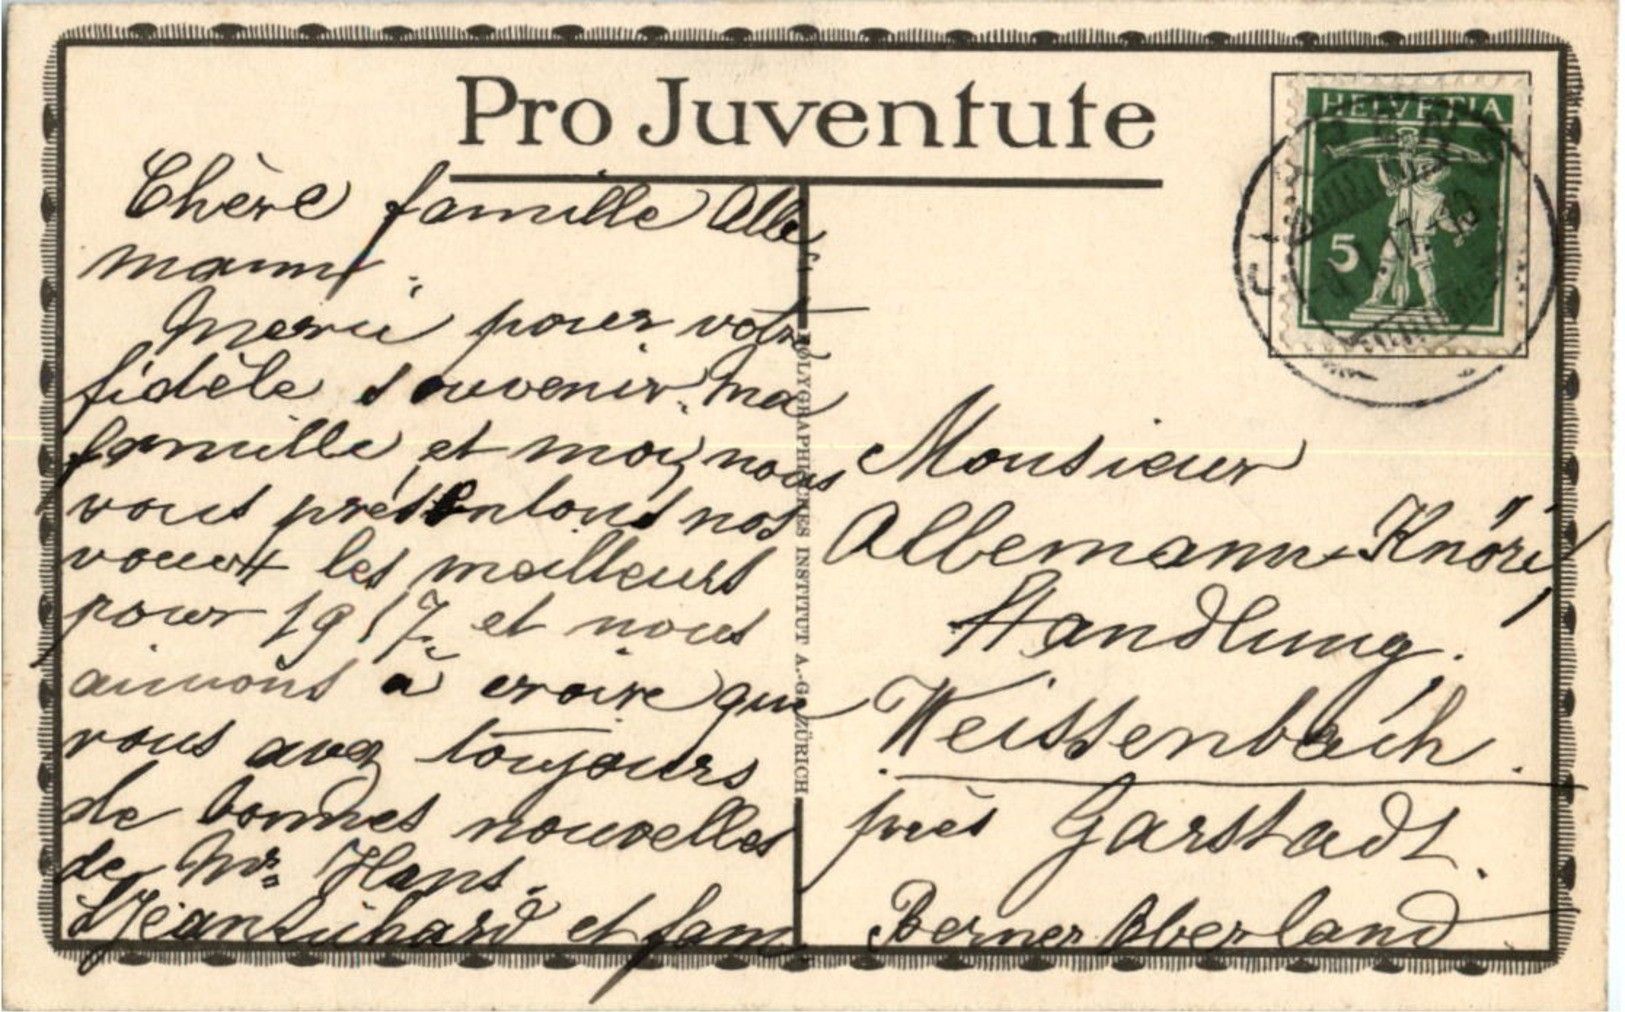 Pro Juventute
HELVETIA
5
Chère famille Alle
mann.
Merci pour votre
fidèle souvenir. Ma
famille et moi, nous
vous présentons nos
voeux les meilleurs
pour 1917, et nous
aimons à croire que
vous avez toujours
de bonnes nouvelles
de Mr. Hans.
et fam.
POLYGRAPHISCHES INSTITUT A.-G. ZÜRICH
Monsieur
Allemann-Knöri,
Handlung.
Weissenbach.
près Garstadt.
Berner Oberland